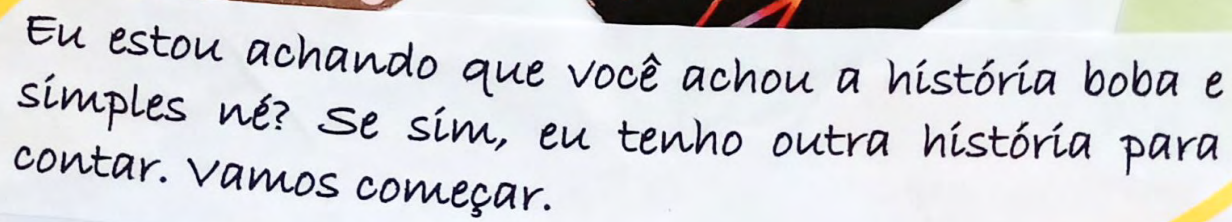 Eu estou achando que você achou a história boba e
simples né? Se sim, eu tenho outra história para
contar. Vamos começar.